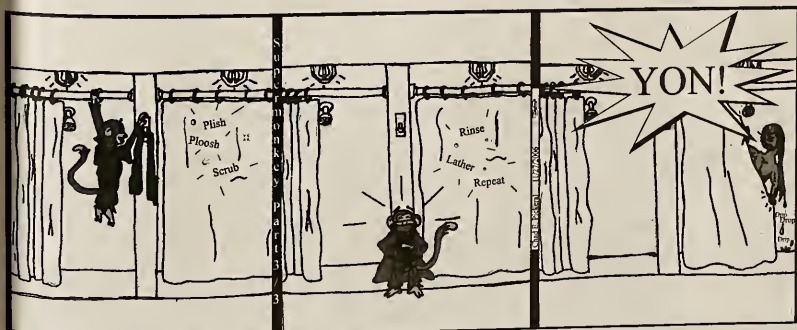 Plish
Ploosh
Scrub
Supermonkey Part 3/3
Rinse
Lather
Repeat
YON!
Drip
Drop
Drip